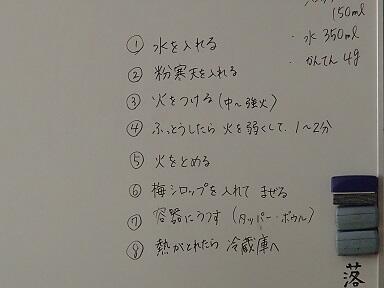 150ml
・水 350ml
・かんてん 4g
① 水を入れる
② 粉寒天を入れる
③ 火をつける (中〜強火)
④ ふっとうしたら 火を弱くして、1〜2分
⑤ 火をとめる
⑥ 梅シロップを入れて まぜる
⑦ 容器にうつす (タッパー・ボウル)
⑧ 熱がとれたら 冷蔵庫へ
落